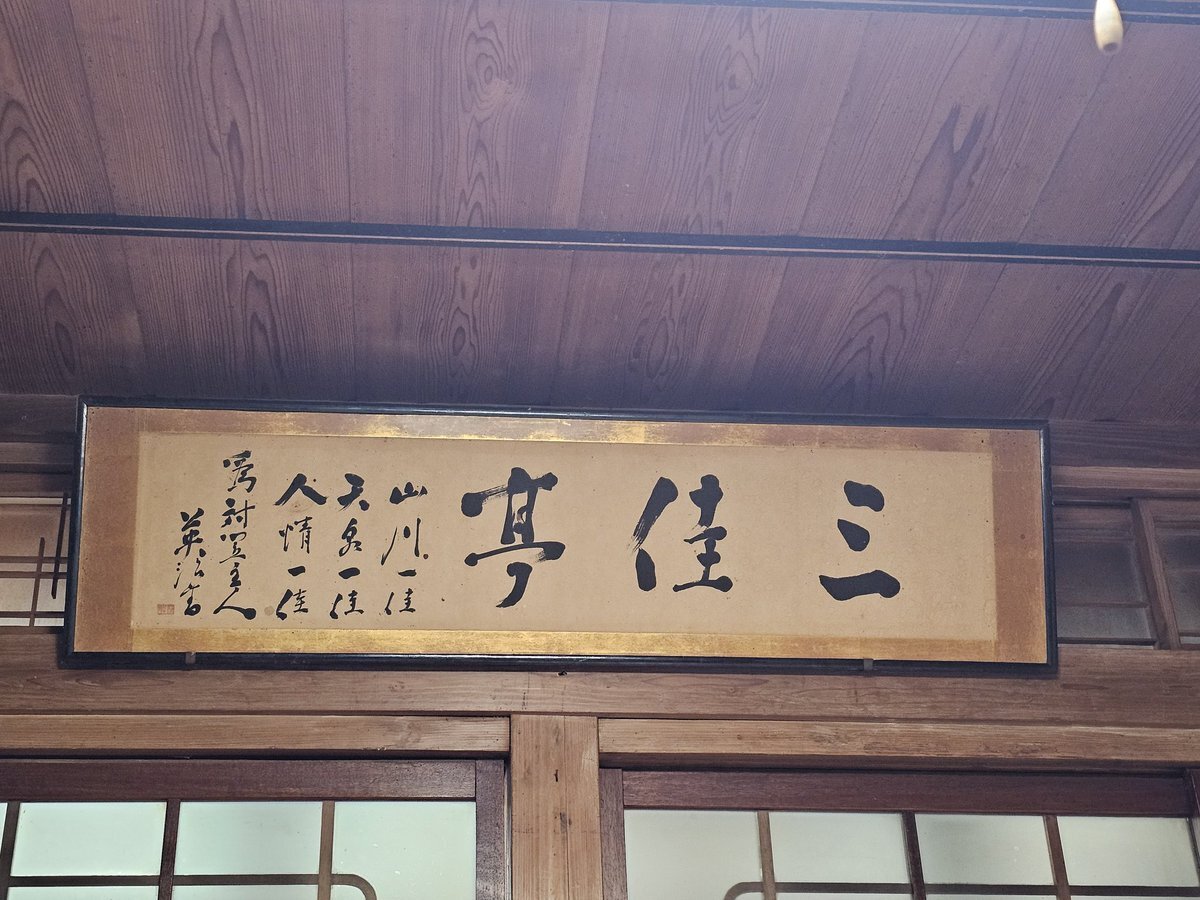 三佳亭
山川一佳
天泉一佳
人情一佳
為主人
英治書